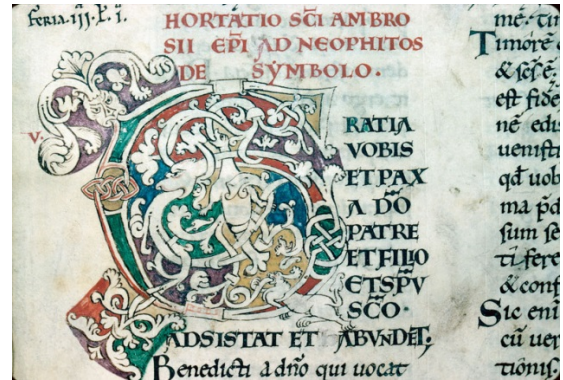 feria.iij.P.I.
HORTATIO SC̄I AMBRO
SII EP̄I AD NEOPHITOS
DE SYMBOLO.
V.
GRATIA
VOBIS
ET PAX
A DŌ
PATRE
ET FILIO
ET SPŪ
SC̄O.
ADSISTAT ET ABVNDET.
Benedicti a dn̄o qui uocat
Timore
& sese
est fide
ne edis
uenisti
qd uob
ma pd
sum se
ti fere
& conf
Sic eni
cū uer
tionis.